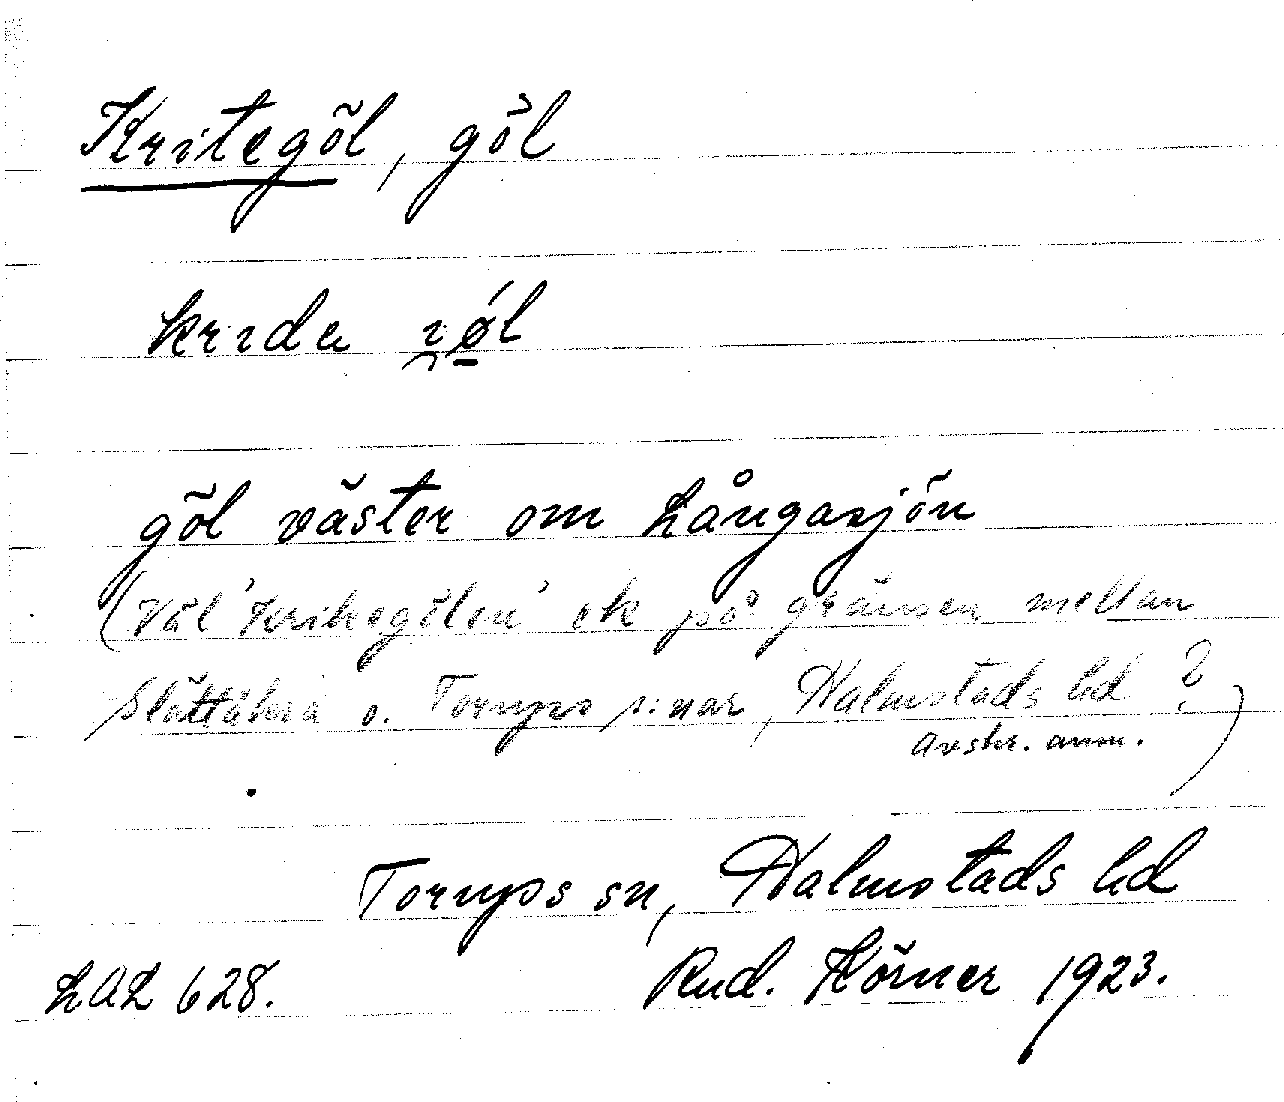 Kritegöl, göl
kridu i̯ǿ̱l
göl väster om Långasjön
(Väl 'Kritegölen' ek på gränsen mellan
Slättåkra o. Tornyps s:nar, Halmstads hd ?
avskr. anm. )
Tornyps sn, Halmstads hd
LAL 628. Rud. Körner 1923.